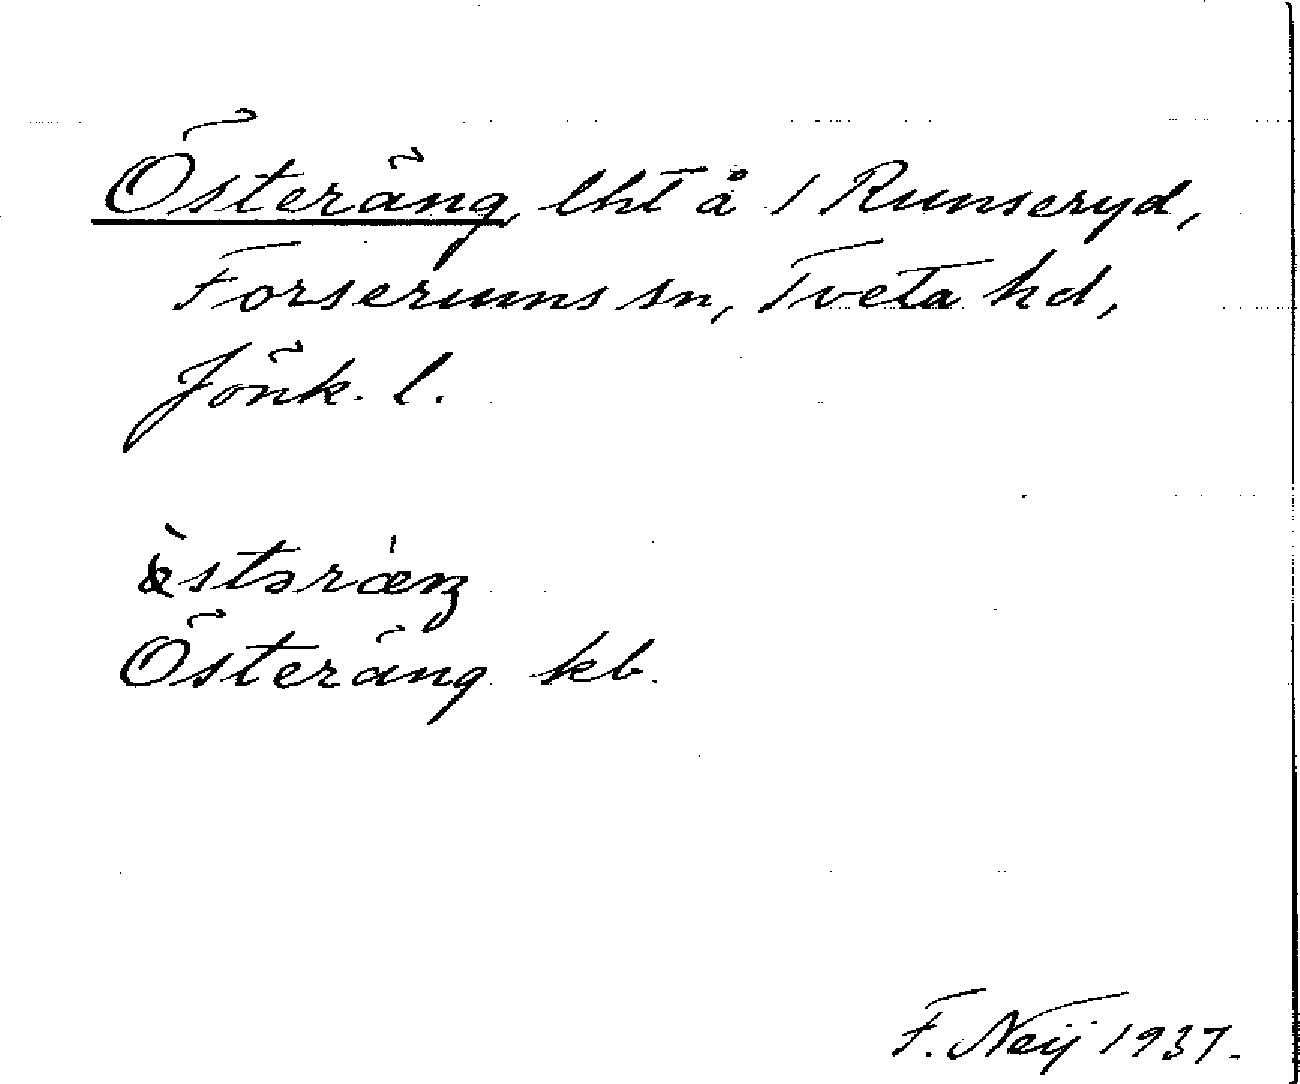 Österäng, lht å 1 Runseryd,
Forserums sn, Tveta hd,
Jönk. l.
Österäng kb.
F. Neij 1937.